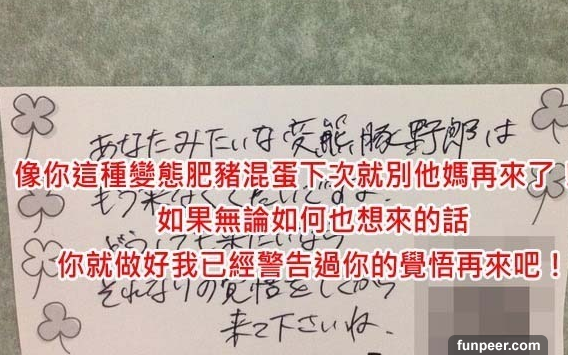 あなたみたいな変態豚野郎は
像你這種變態肥豬混蛋下次就別他媽再來了！
もう来なくていいですよ
如果無論如何也想來的話
どうしても来たいなら
你就做好我已經警告過你的覺悟再來吧！
それなりの覚悟をしてから
来て下さいね.
funpeer.com